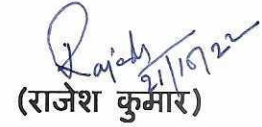 Rajesh
21/10/22
(राजेश कुमार)